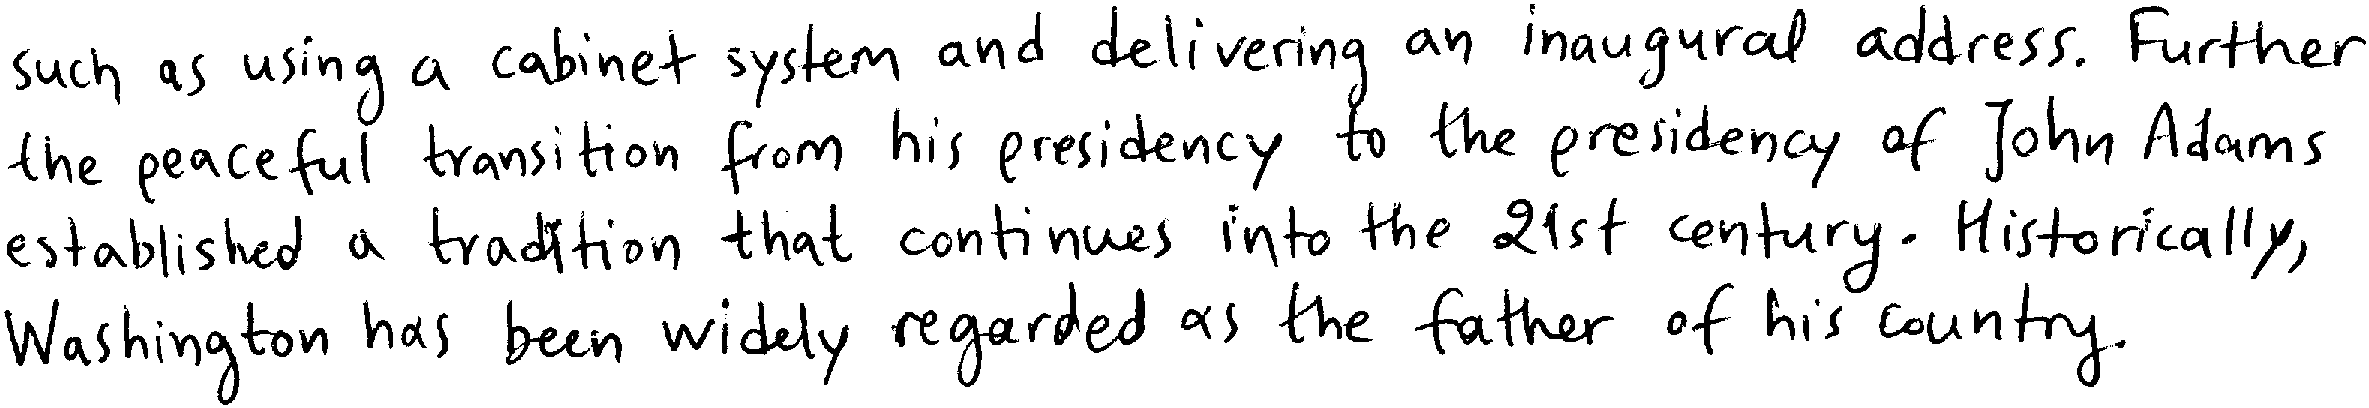 such as using a cabinet system and delivering an inaugural address. Further
the peaceful transition from his presidency to the presidency of John Adams
established a tradition that continues into the 21st century. Historically,
Washington has been widely regarded as the father of his country.